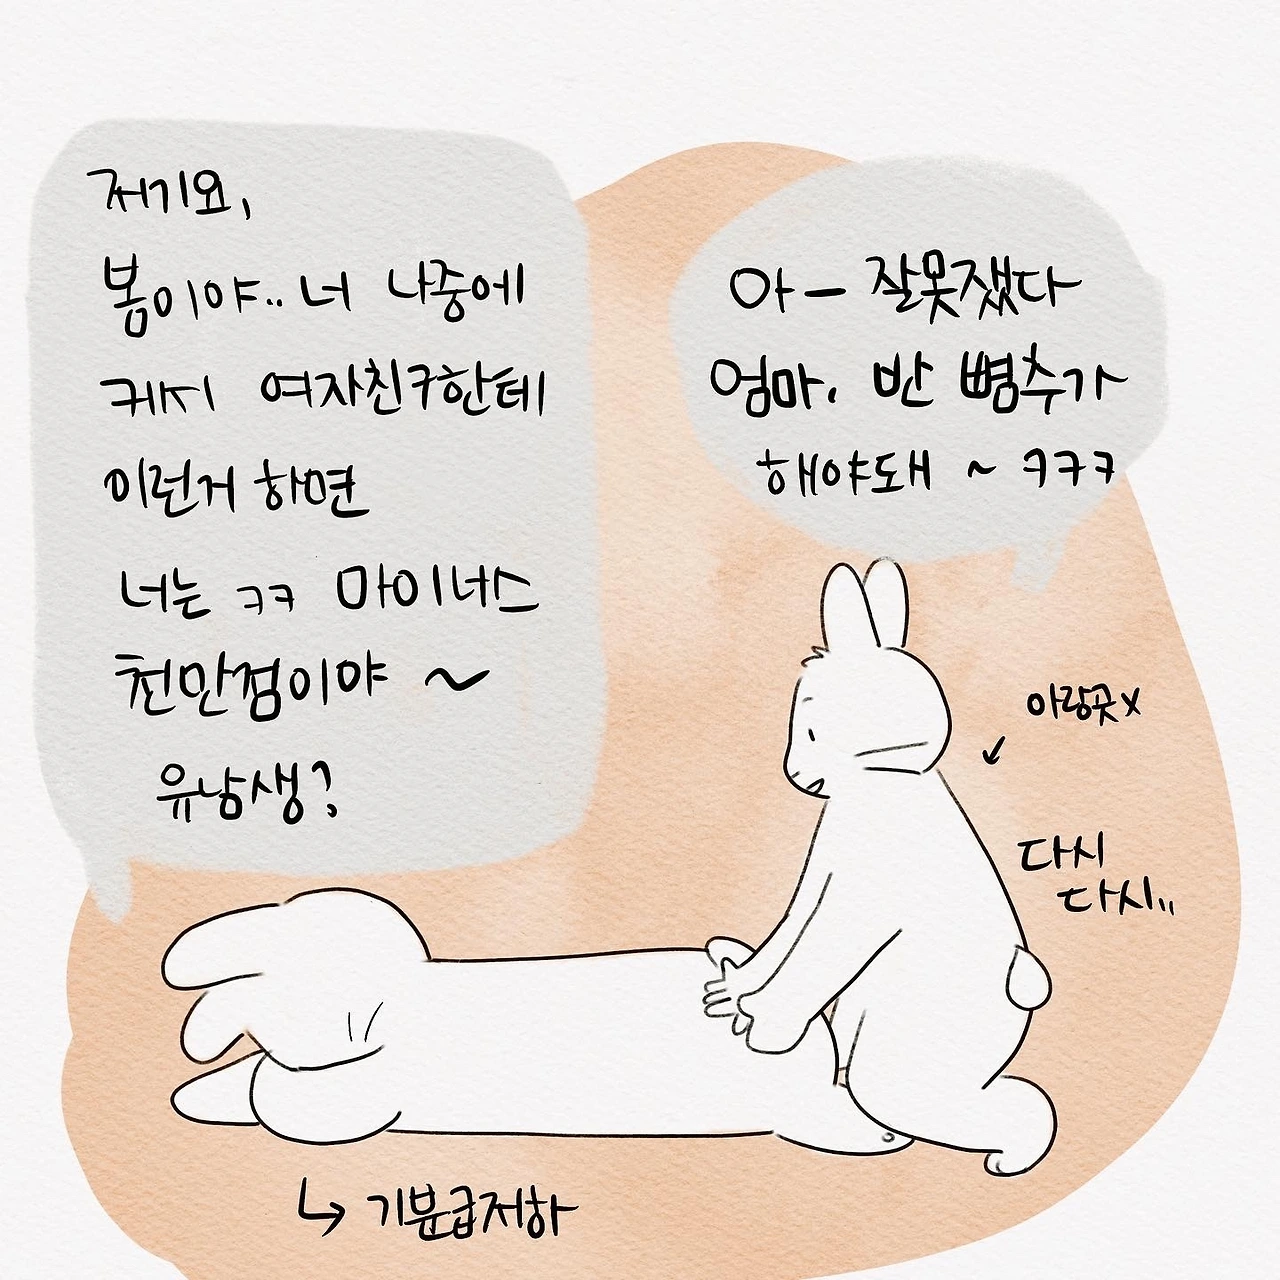 저기요,
봄이야.. 너 나중에
커서 여자친구한테
이런거 하면
너는 ㅋㅋ 마이너스
천만점이야 ~
유남생?
아 - 잘못쟀다
엄마, 반 뼘추가
해야돼 ~ ㅋㅋㅋ
아랑곳x
다시
다시..
기분급저하